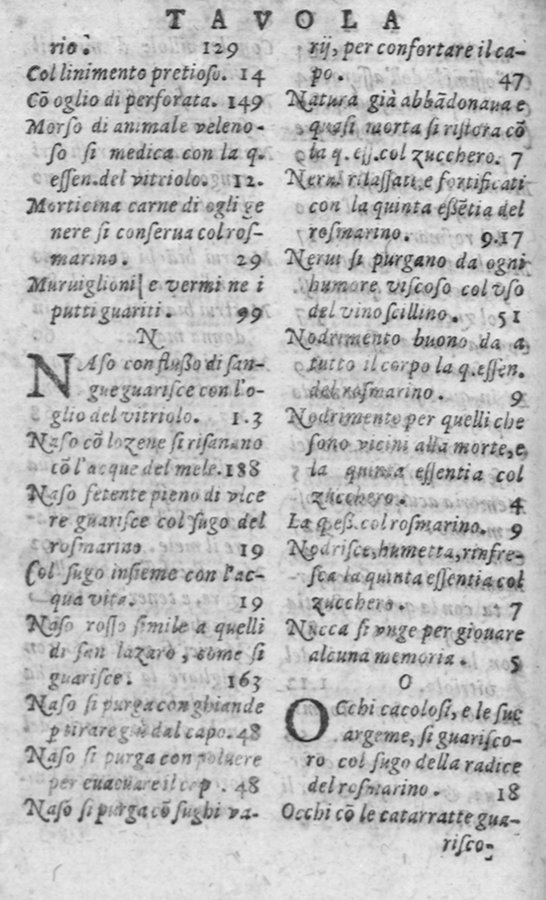 TAVOLA
rio. 129
Col linimento pretioso. 14
Cõ oglio di perforata. 149
Morso di animale veleno-
so si medica con la q.
essen. del vitriolo. 12.
Morticina carne di ogli ge
nere si conserua col ros-
marino. 29
Muruiglioni e vermi ne i
putti guariti. 99
N
NAso con flußo di san-
gue guarisce con l'o-
glio del vitriolo. 1.3
Naso cõ lozene si risanano
cõ l'acque del mele. 188
Naso fetente pieno di vlce
re guarisce col sugo del
rosmarino 19
Col sugo insieme con l'ac-
qua vita. 19
Naso rosso simile a quelli
di san lazaro, come si
guarisce. 163
Naso si purga con ghiande
p tirare giù dal capo. 48
Naso si purga con poluere
per euacuare il cap . 48
Naso si purga cõ sughi va-
rij, per confortare il ca-
po. 47
Natura già abbãdonaua e
quasi morta si ristora cõ
la q. ess. col zucchero. 7
Nerui rilassati, e fortificati
con la quinta eßẽtia del
rosmarino. 9.17
Nerui si purgano da ogni
humore viscoso col vso
del vino scillino. 51
Nodrimento buono da a
tutto il corpo la q. essen.
del rosmarino. 9
Nodrimento per quelli che
sono vicini alla morte, e
la quinta essentia col
zucchero. 4
La q eß. col rosmarino. 9
Nodrisce, humetta, rinfre-
sca la quinta essentia col
zucchero. 7
Nucca si vnge per giouare
alcuna memoria. 5
O
OCchi cacolosi, e le sue
argeme, si guarisco-
ro col sugo della radice
del rosmarino. 18
Occhi cõ le catarratte gua-
risco-